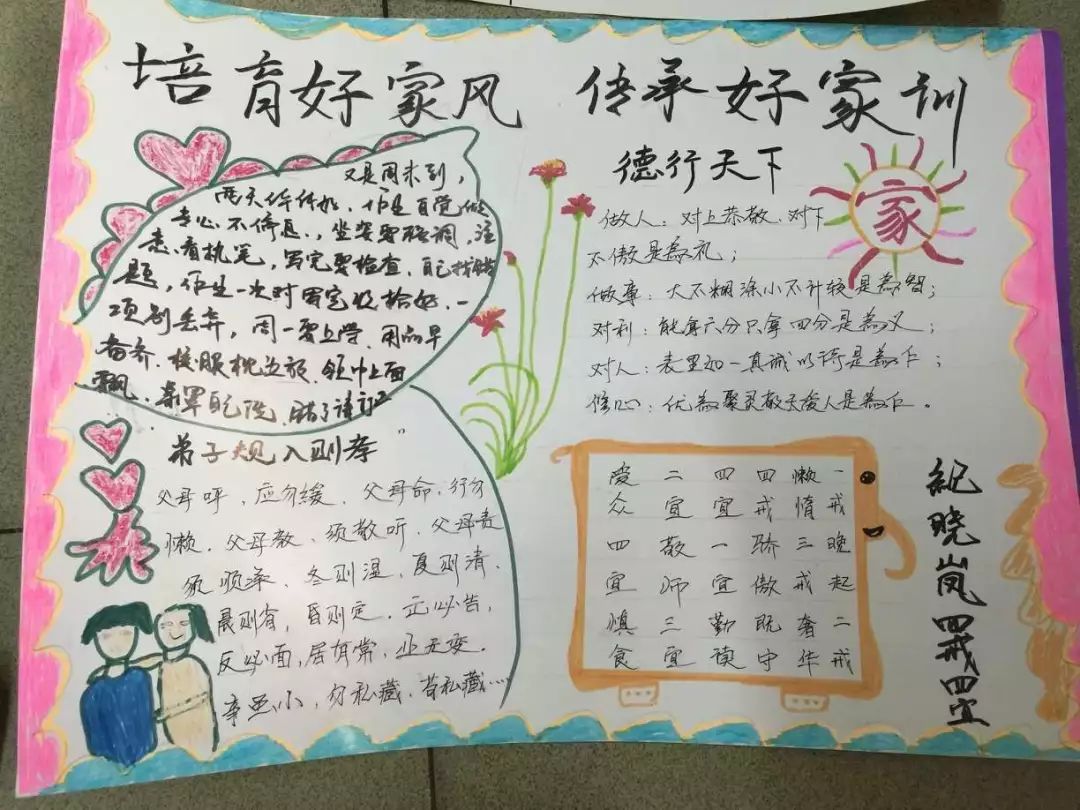 培育好家风 传承好家训
又是周末到，
专心不停息，坐姿要端正，注
意看执笔，写完要检查，自己找错
题，作业一次时写完收拾好，一
项别丢弃，周一要上学，用品早
备齐，校服枕边放，领巾上面
飘
弟子规入则孝
父母呼，应勿缓，父母命，行勿
懒，父母教，须敬听，父母责
须顺承，冬则温，夏则清，
晨则省，昏则定，出必告，
反必面，居有常，业无变，
事虽小，勿私藏，苟私藏……
德行天下
家
做人：对上恭敬，对下
不傲是為礼；
做事：大不糊涂小不计较是為智；
对利：能拿六分只拿四分是為义；
对人：表里如一真诚以待是為仁；
修心：优為聚灵敬天爱人是為仁。
爱二四四懒一
众宜宜戒惰戒
四敬一骄三晚
宜师宜傲戒起
慎三勤既奢二
食宜读守华戒
紀晓岚四戒四宜